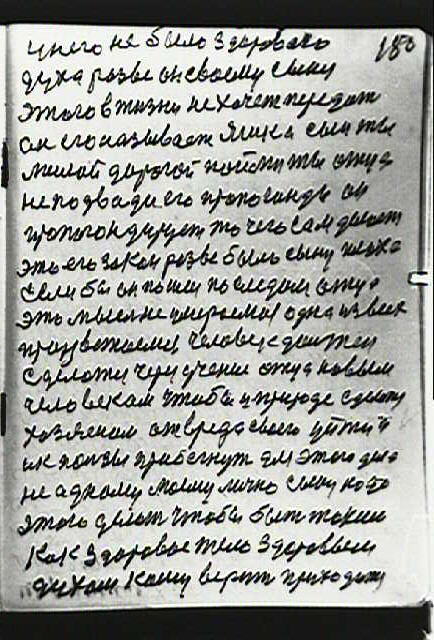 у него не было здорового 180
духа разве он своему сыну
этого в жизни не хочет передат
он его называет Яшка сын ты
милой дорогой пойми ты отца
не подвади его пропоганды он
пропогондирует то чего сам делает
это его закон разве было сыну плохо
если бы он пошел по следам отца
это мысля не умираемая одна из всех
человек должен
сделатся через учение отца новым
человеком чтобы в природе сделатся
хозяеном от вреда своего уйти а
к ползы прибегнут для этого дела
не адному моему лично сыну надо
этого делат чтобы быт таким
как здоровое тело здоровым
духом кому верит приходится